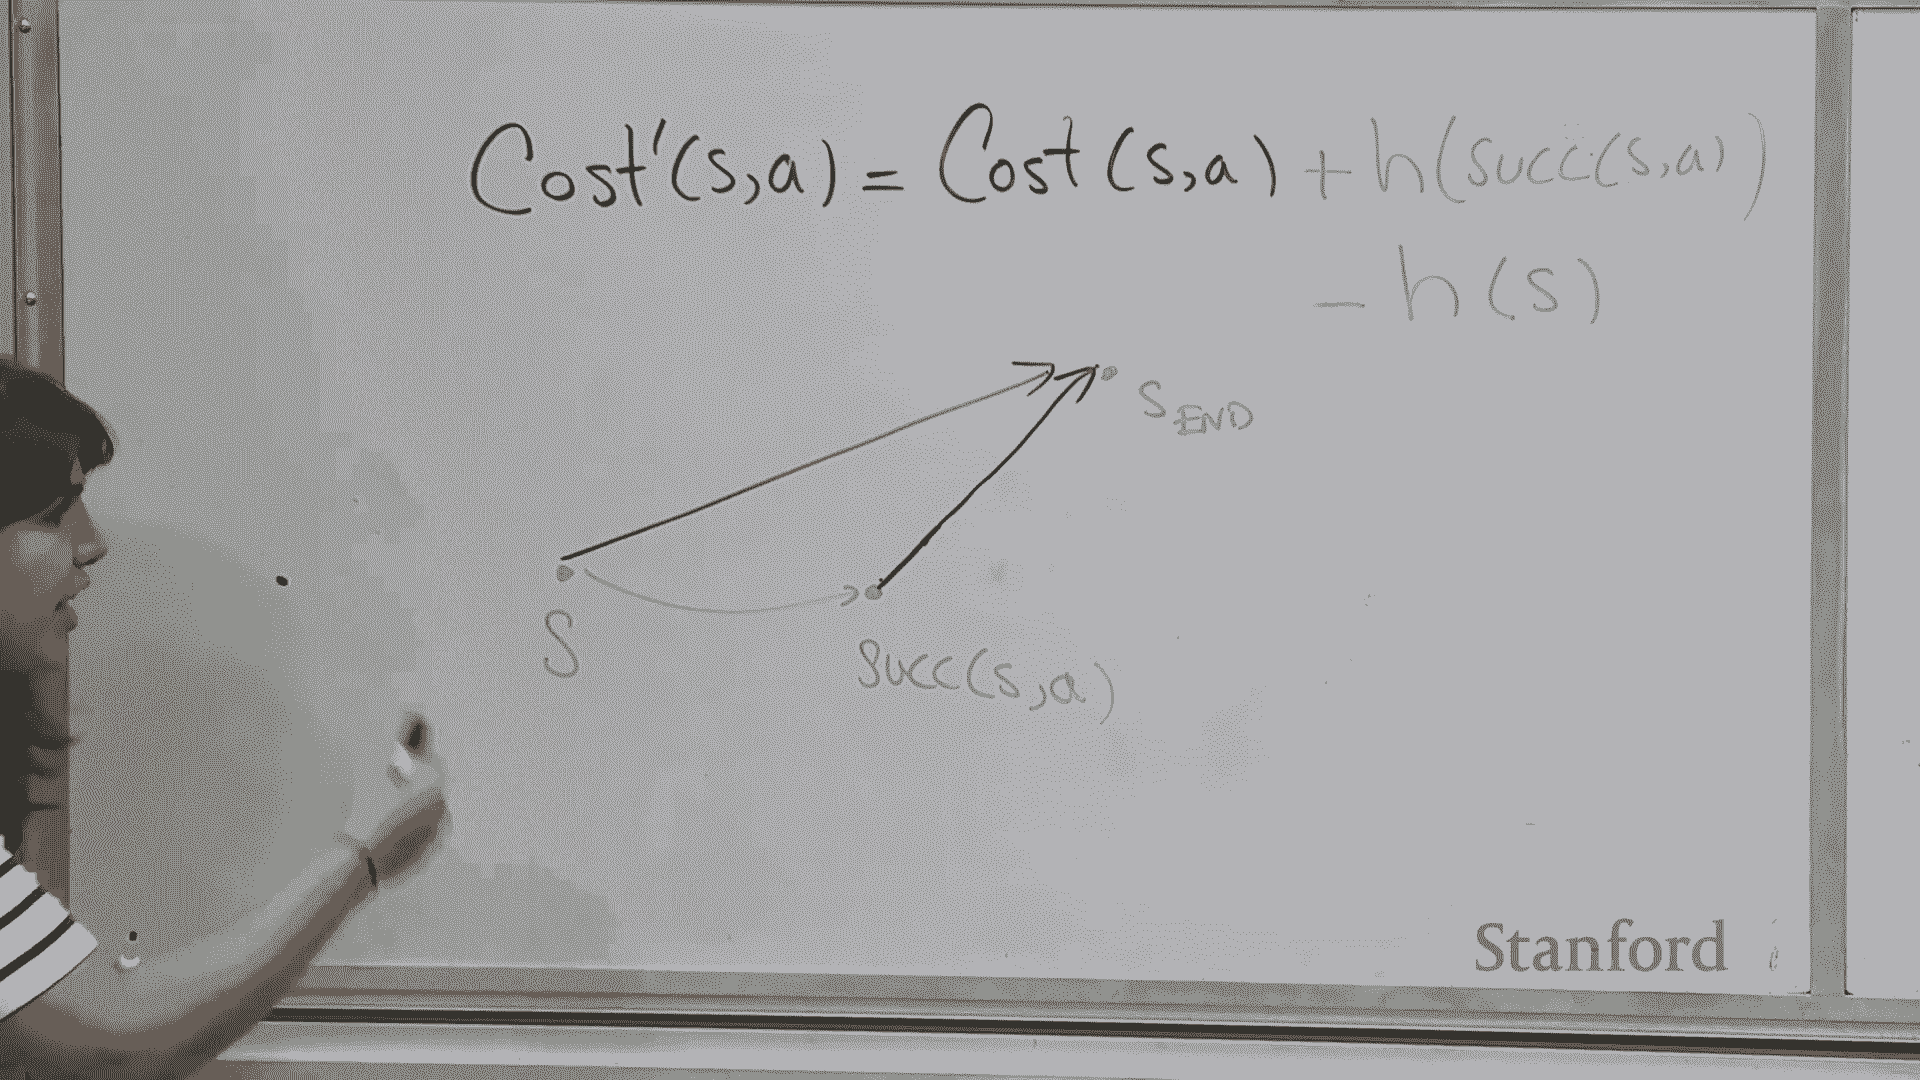 Cost'(s,a) = Cost(s,a) + h(succ(s,a))
- h(s)
S_END
S
Succ(s,a)
Stanford